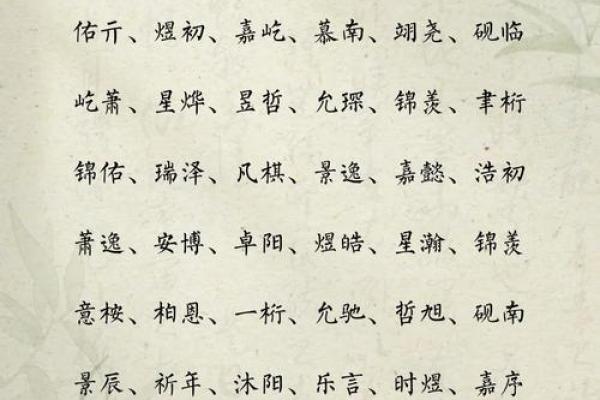 佑亓、煜初、嘉屹、慕南、翊尧、砚临
屹萧、星烨、昱哲、允琛、锦羡、聿桁
锦佑、瑞泽、凡棋、景逸、嘉懿、浩初
萧逸、安博、卓阳、煜皓、星瀚、锦羡
意桉、柏恩、一桁、允驰、哲旭、砚南
景辰、祈年、沐阳、乐言、时煜、嘉序